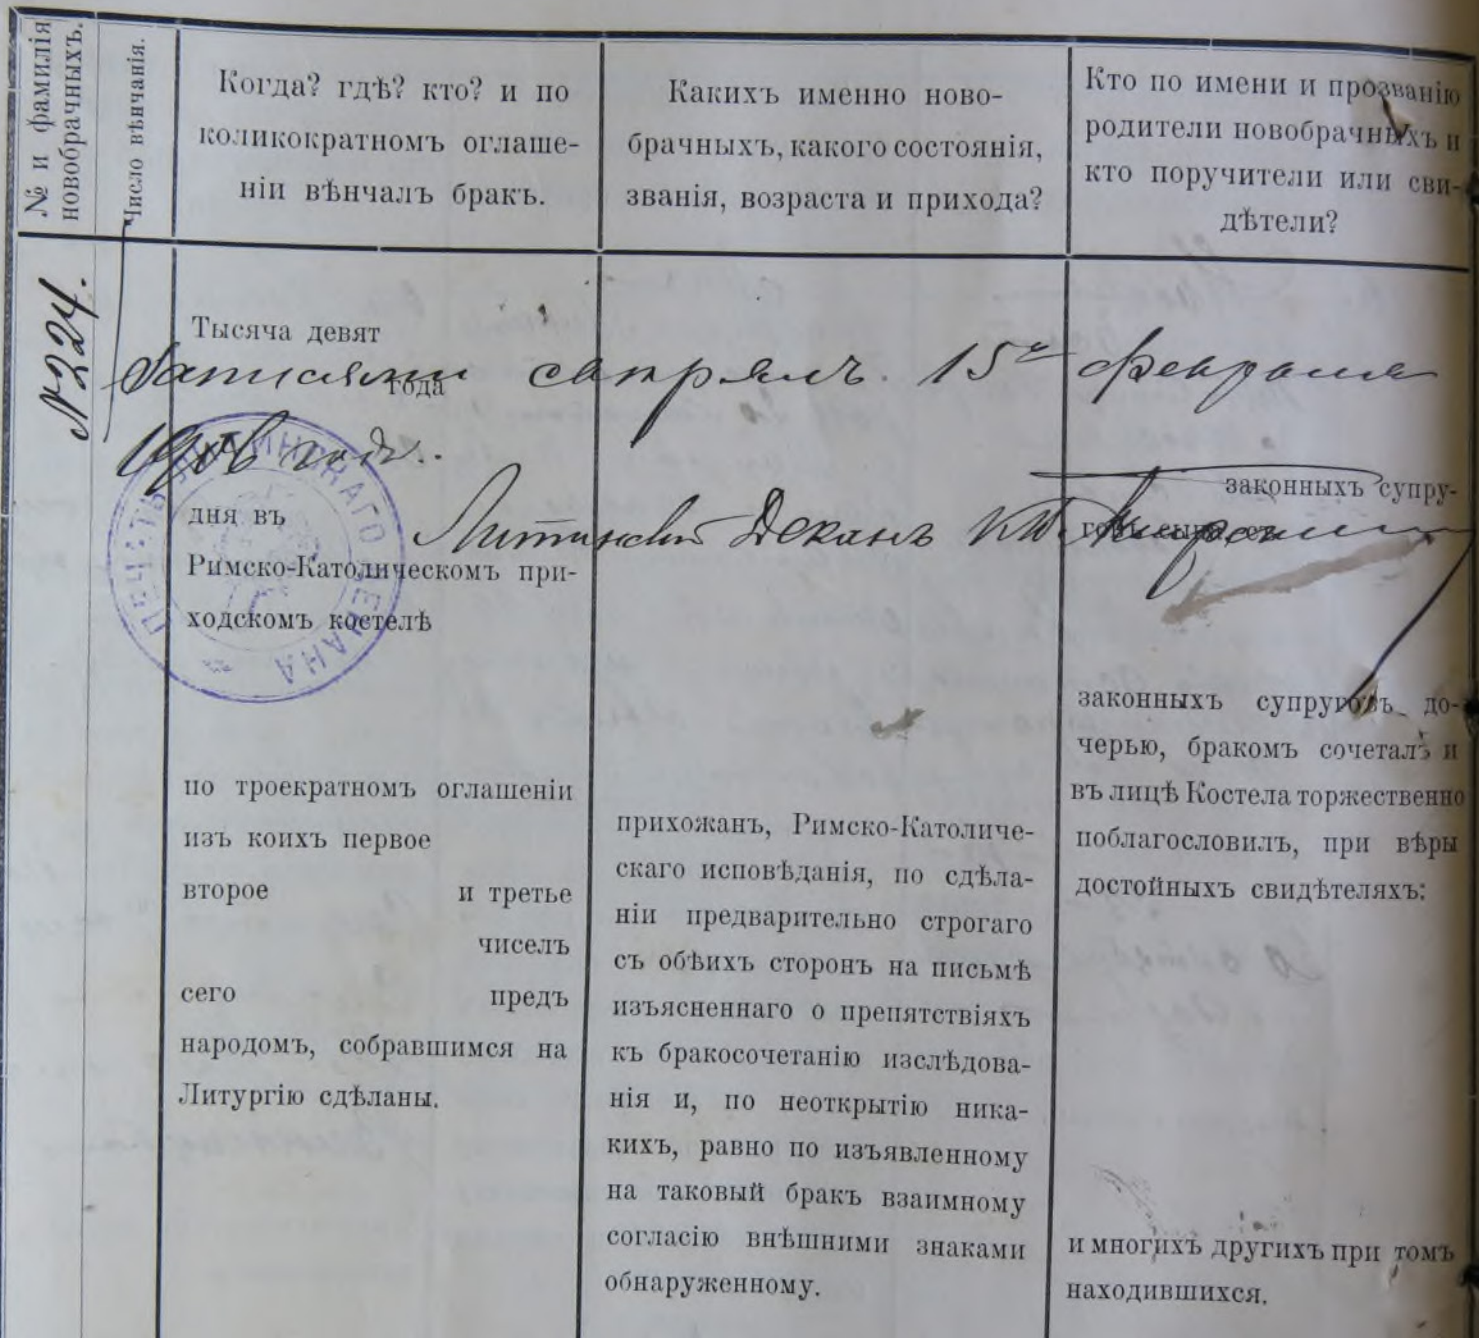 № и фамилія
новобрачныхъ.
Число вѣнчанія.
Когда? гдѣ? кто? и по
коликократномъ оглаше-
ніи вѣнчалъ бракъ.
Какихъ именно ново-
брачныхъ, какого состоянія,
званія, возраста и прихода?
Кто по имени и прозванію
родители новобрачныхъ и
кто поручители или сви-
дѣтели?
№224.
Тысяча девят
года
15го февраля
1906 года.
ПЕЧАТЬ ЛИТИНСКАГО ДЕКАНА
дня въ
Римско-Католическомъ при-
ходскомъ костелѣ
Литинскій Деканъ
законныхъ супру-
по троекратномъ оглашеніи
изъ коихъ первое
второе и третье
чиселъ
сего предъ
народомъ, собравшимся на
Литургію сдѣланы.
прихожанъ, Римско-Католиче-
скаго исповѣданія, по сдѣла-
ніи предварительно строгаго
съ обѣихъ сторонъ на письмѣ
изъясненнаго о препятствіяхъ
къ бракосочетанію изслѣдова-
нія и, по неоткрытію ника-
кихъ, равно по изъявленному
на таковый бракъ взаимному
согласію внѣшними знаками
обнаруженному.
законныхъ супруговъ до-
черью, бракомъ сочеталъ и
въ лицѣ Костела торжественно
поблагословилъ, при вѣры
достойныхъ свидѣтеляхъ:
и многихъ другихъ при томъ
находившихся.